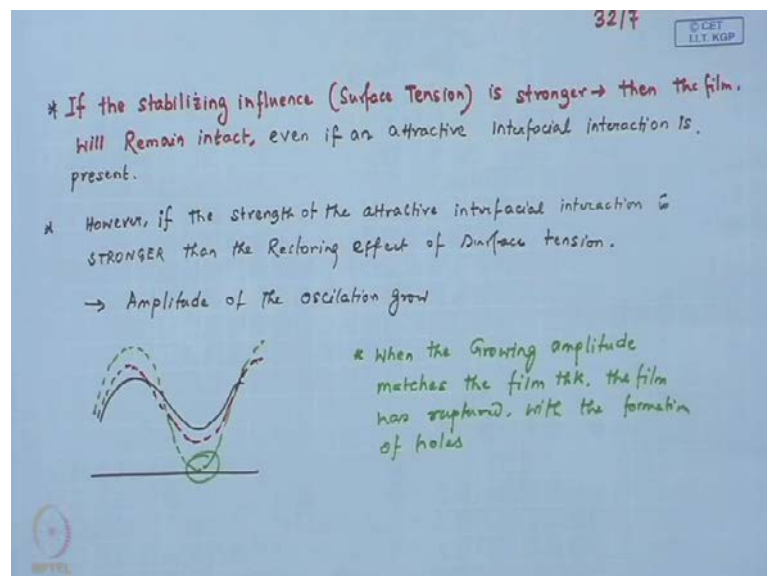 32/7
© CET
I.I.T. KGP
* If the stabilizing influence (Surface Tension) is stronger → then the film.
will Remain intact, even if an attractive Interfacial interaction is.
present.
* However, if the strength of the attractive interfacial interaction is
STRONGER than the Restoring effect of Surface tension.
→ Amplitude of the oscilation grow
* When the Growing amplitude
matches the film thk. the film
has ruptured. with the formation
of holes
NPTEL